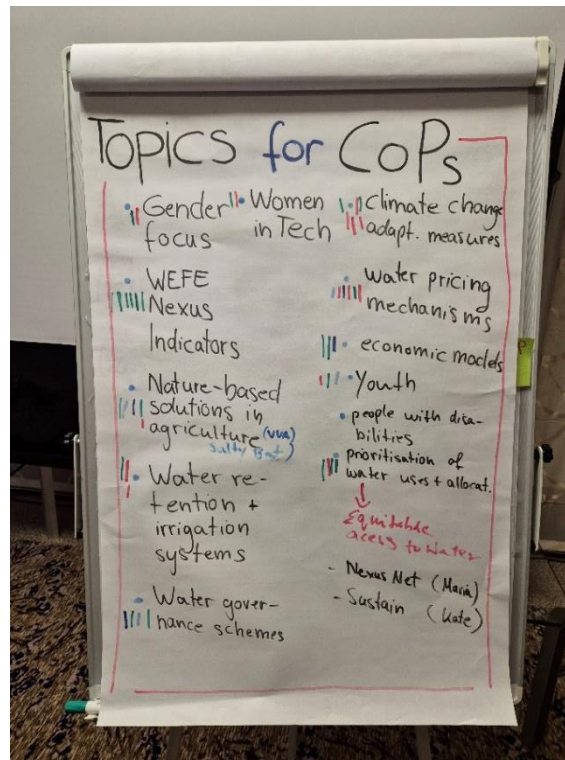 Topics for CoPs
• Gender
focus
• Women
in Tech
• WEFE
Nexus
Indicators
• Nature-based
solutions in
agriculture (VUA)
Salty Bot
• Water re-
tention +
irrigation
systems
• Water gover-
nance schemes
• Climate change
adapt. measures
• water pricing
mechanisms
• economic models
• Youth
• people with disa-
bilities
• prioritisation of
water uses + allocat.
↓
Equitable
acess to water
- Nexus Net (Maria)
- Sustain (Kate)